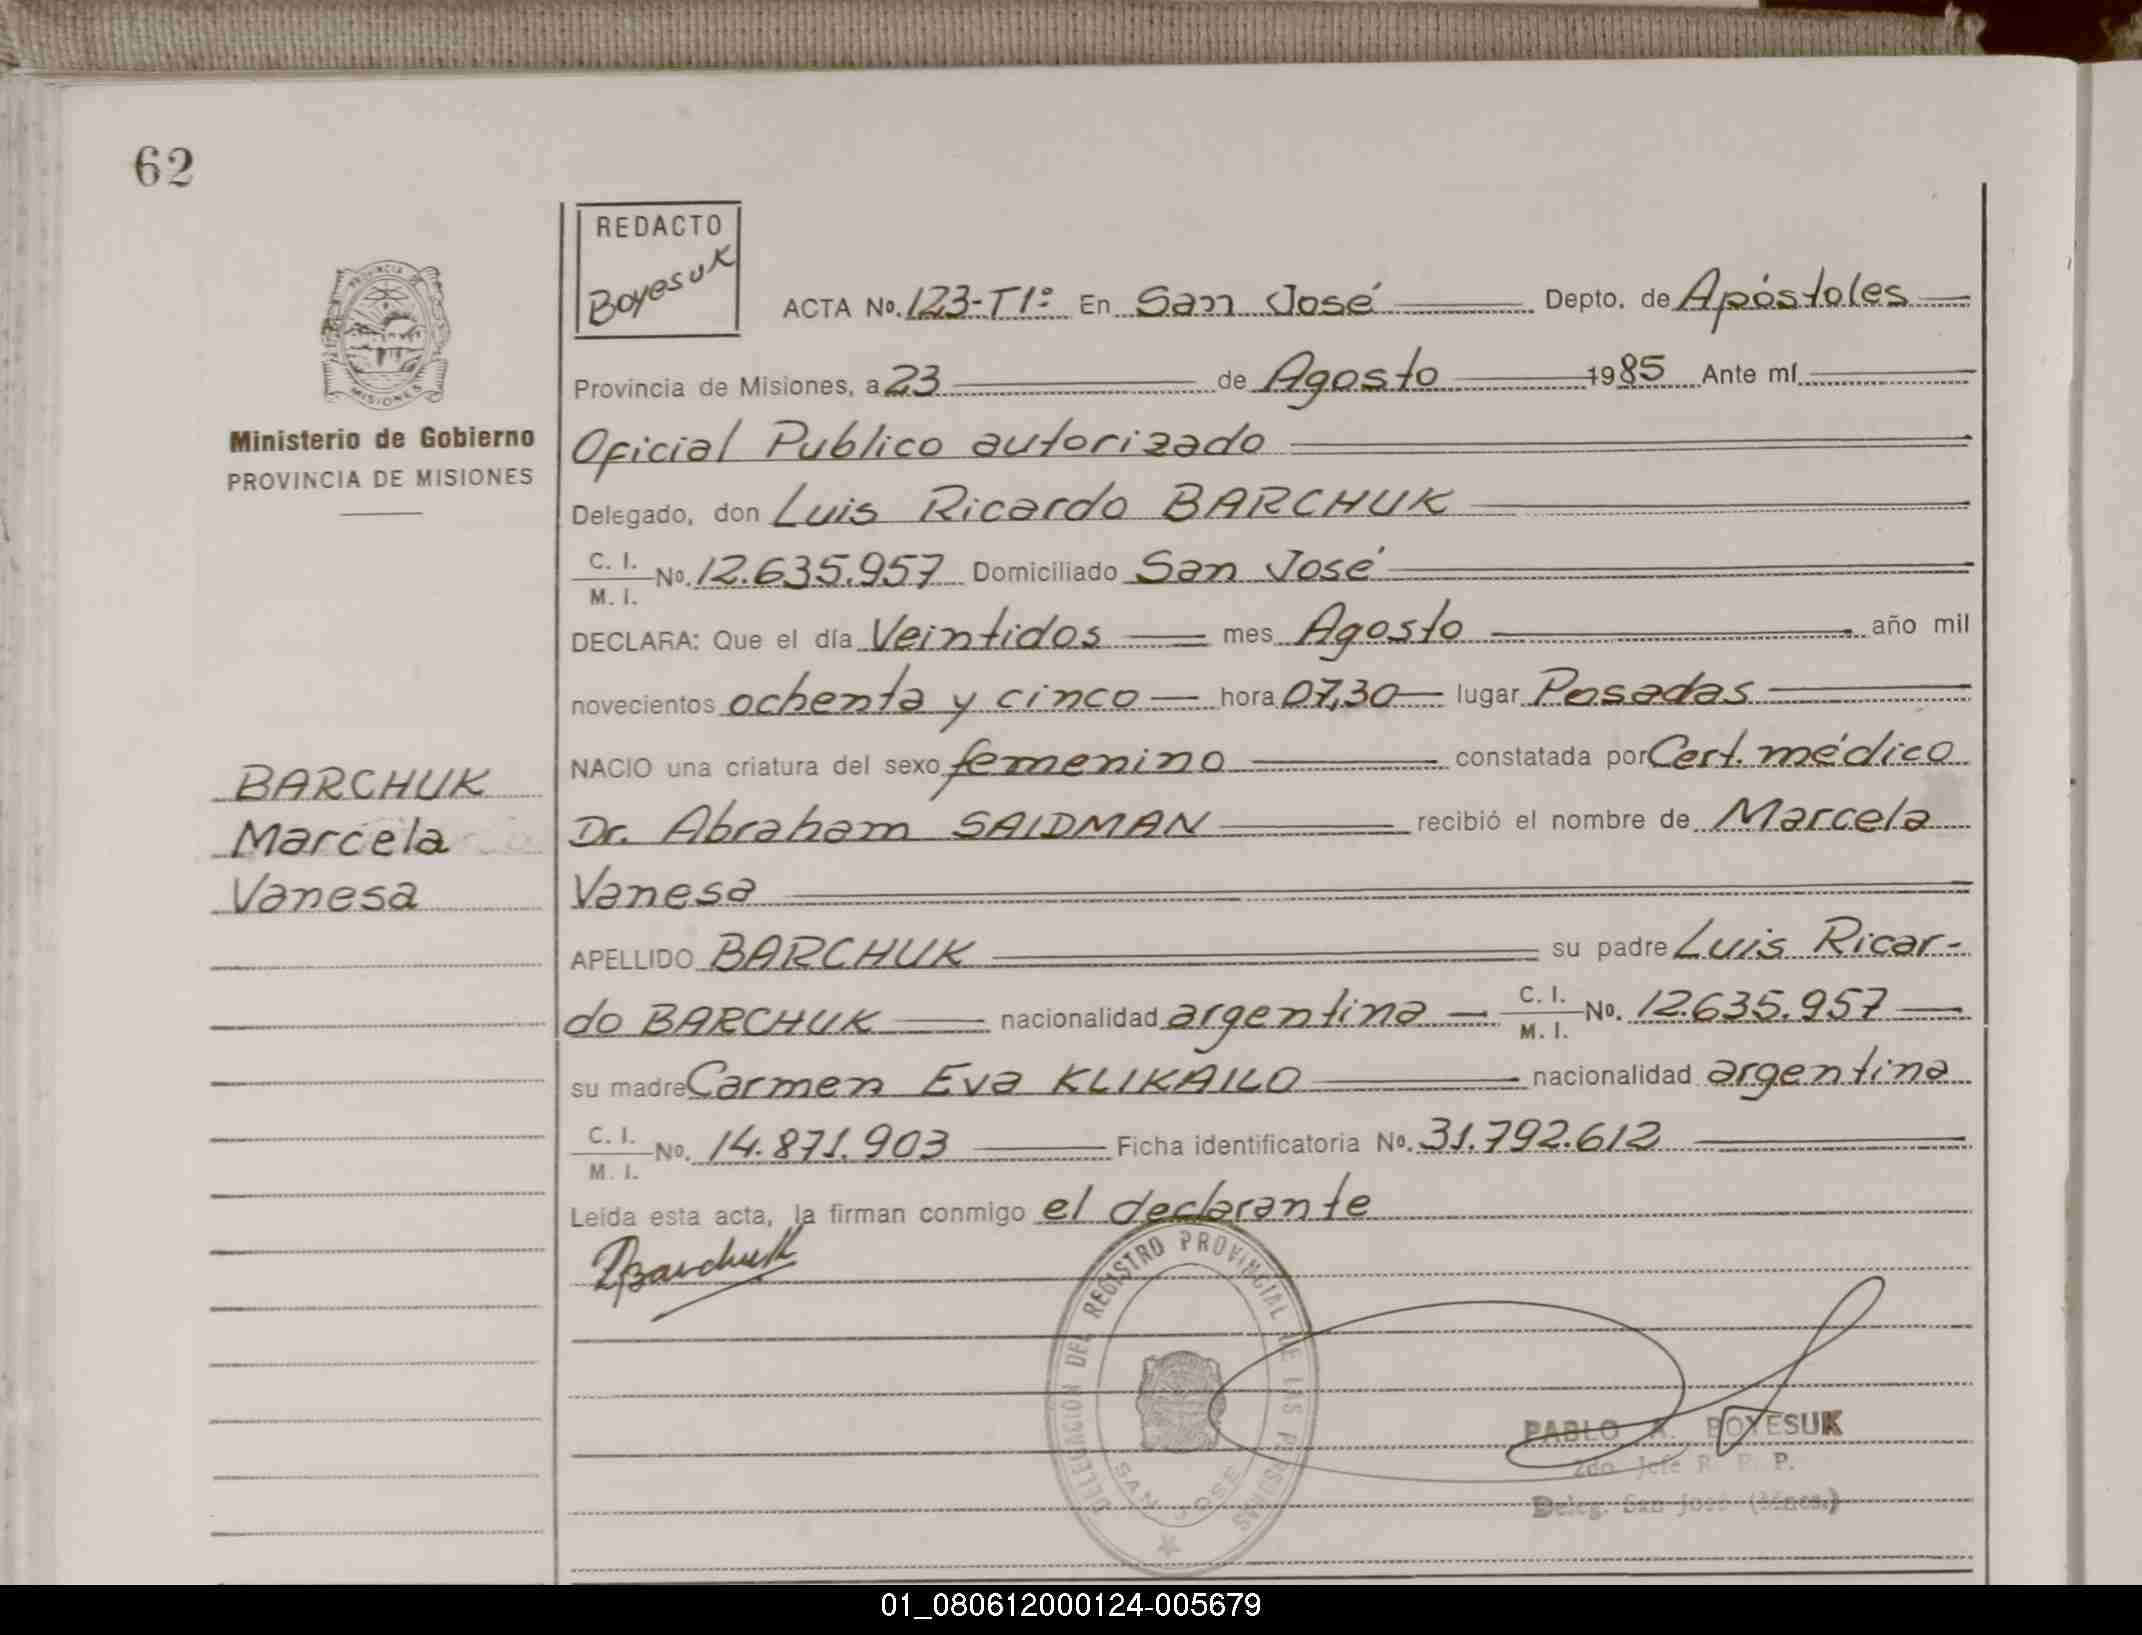 62
REDACTO
Boyesuk
ACTA No. 123-T1º En San José Depto. de Apóstoles
Provincia de Misiones, a 23 de Agosto 1985 Ante mí
Ministerio de Gobierno
PROVINCIA DE MISIONES
Oficial Publico autorizado
Delegado, don Luis Ricardo BARCHUK
C. I.
M. I. No. 12.635.957 Domiciliado San José
DECLARA: Que el día Veintidos mes Agosto año mil
novecientos ochenta y cinco hora 07,30 lugar Posadas
NACIO una criatura del sexo femenino constatada por Cert. médico
BARCHUK
Marcela
Vanesa
Dr. Abraham SAIDMAN recibió el nombre de Marcela
Vanesa
APELLIDO BARCHUK su padre Luis Ricar-
do BARCHUK nacionalidad argentina C. I. M. I. No. 12.635.957
su madre Carmen Eva KLIKAILO nacionalidad argentina
C. I.
M. I. No. 14.871.903 Ficha identificatoria No. 31.792.612
Leída esta acta, la firman conmigo el declarante
LBarchuk
DELEGACION DEL REGISTRO PROVINCIAL DE LAS PERSONAS
SAN JOSE
PABLO A. BOYESUK
2do. Jefe R. P. P.
Deleg. San José (Mnes.)
PROVINCIA DE
MISIONES
01_080612000124-005679